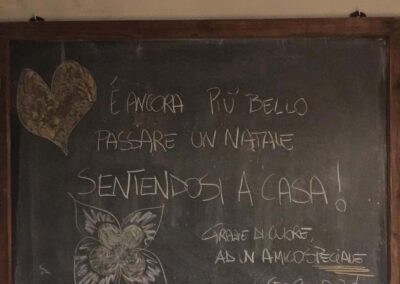 É ANCORA PIÚ BELLO
PASSARE UN NATALE
SENTENDOSI A CASA!
GRAZIE DI CUORE,
AD UN AMICO SPECIALE